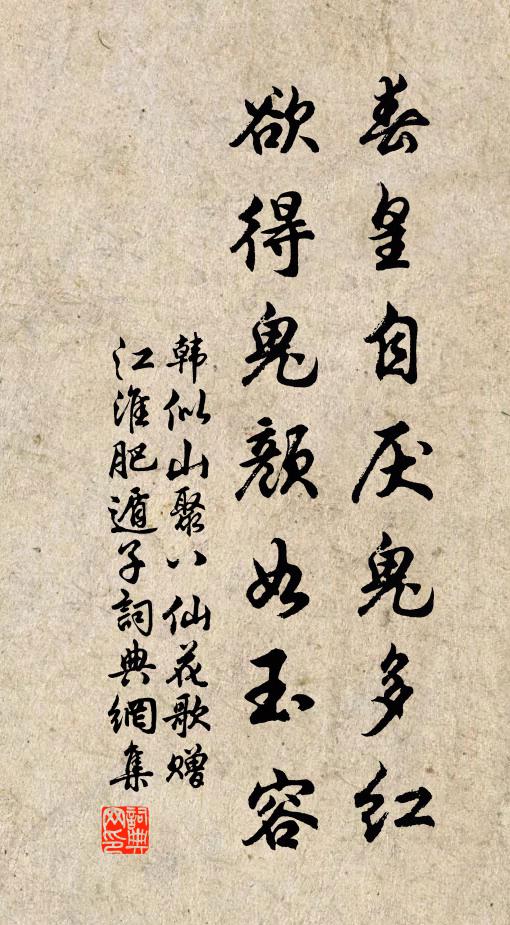 春皇自厌鬼多红
欲得鬼颜如玉容
韩似山聚八仙花歌赠
江淮肥遁子詞典網集
詞典网印